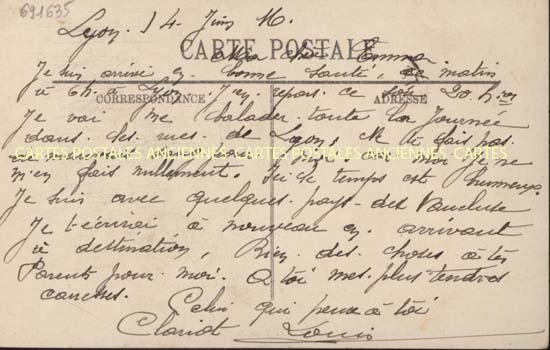 691635
Lyon. 14 Juin 16.
CARTE POSTALE
Ma chère Emma.
Je suis arrivé en bonne santé, ce matin
à 6h à Lyon. J'en repars ce soir 20 h
CORRESPONDANCE ADRESSE
Je vai me balader toute la journée
dans les rues de Lyon. Ne te fais pas
CARTES POSTALES ANCIENNES CARTES POSTALES ANCIENNES CARTES
m'en fais nullement. Ici le temps est brumeux.
Je suis avec quelques pays des Vaucluse
Je t'écrirai à nouveau en arrivant
à destination, Bien des choses à tes
Parents pour moi. A toi mes plus tendres
caresses.
Celui qui pense à toi
Clariot Louis